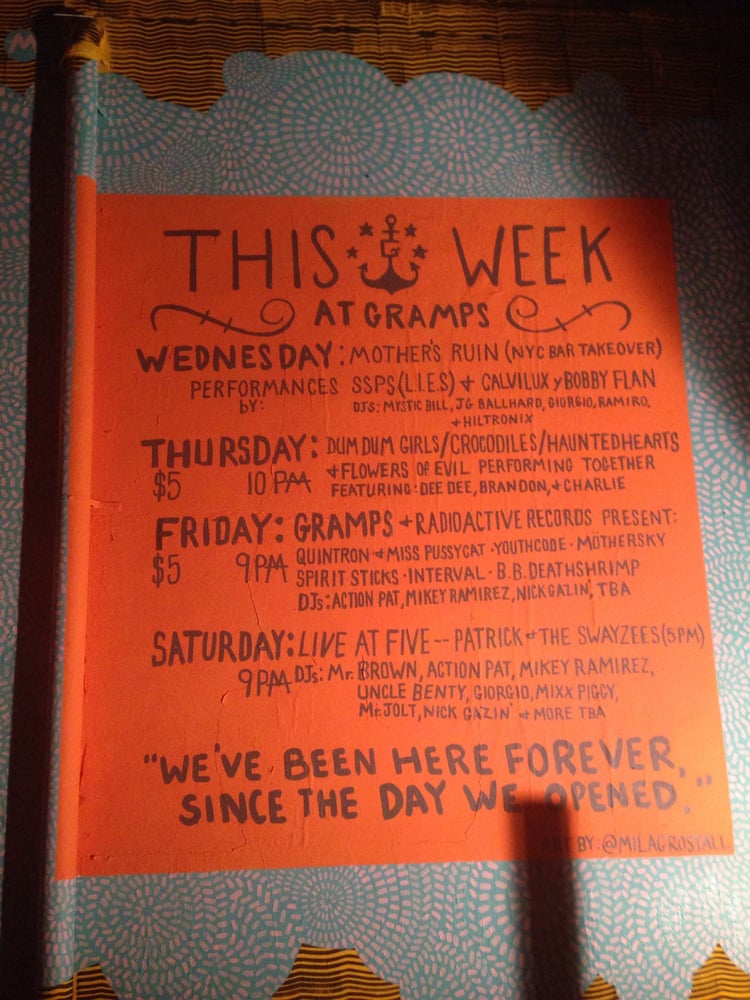 THIS G WEEK
AT GRAMPS
WEDNESDAY: MOTHER'S RUIN (NYC BAR TAKEOVER)
PERFORMANCES SSPS (L.I.E.S) + CALVILUX y BOBBY FLAN
by: DJS: MYSTIC BILL, JG BALLHARD, GIORGIO, RAMIRO,
+ HILTRONIX
THURSDAY: DUM DUM GIRLS/CROCODILES/HAUNTED HEARTS
+ FLOWERS OF EVIL PERFORMING TOGETHER
$5 10 PM FEATURING: DEE DEE, BRANDON, + CHARLIE
FRIDAY: GRAMPS + RADIOACTIVE RECORDS PRESENT:
$5 9PM QUINTRON + MISS PUSSYCAT · YOUTHCODE · MÖTHERSKY
SPIRIT STICKS · INTERVAL · B.B. DEATHSHRIMP
DJs: ACTION PAT, MIKEY RAMIREZ, NICK GAZIN', TBA
SATURDAY: LIVE AT FIVE -- PATRICK + THE SWAYZEES (5PM)
9PM DJs: Mr. BROWN, ACTION PAT, MIKEY RAMIREZ,
UNCLE BENTY, GIORGIO, MIXX PIGGY,
Mr. JOLT, NICK GAZIN' + MORE TBA
"WE'VE BEEN HERE FOREVER,
SINCE THE DAY WE OPENED."
ART BY: @MILAGROSTALL
M